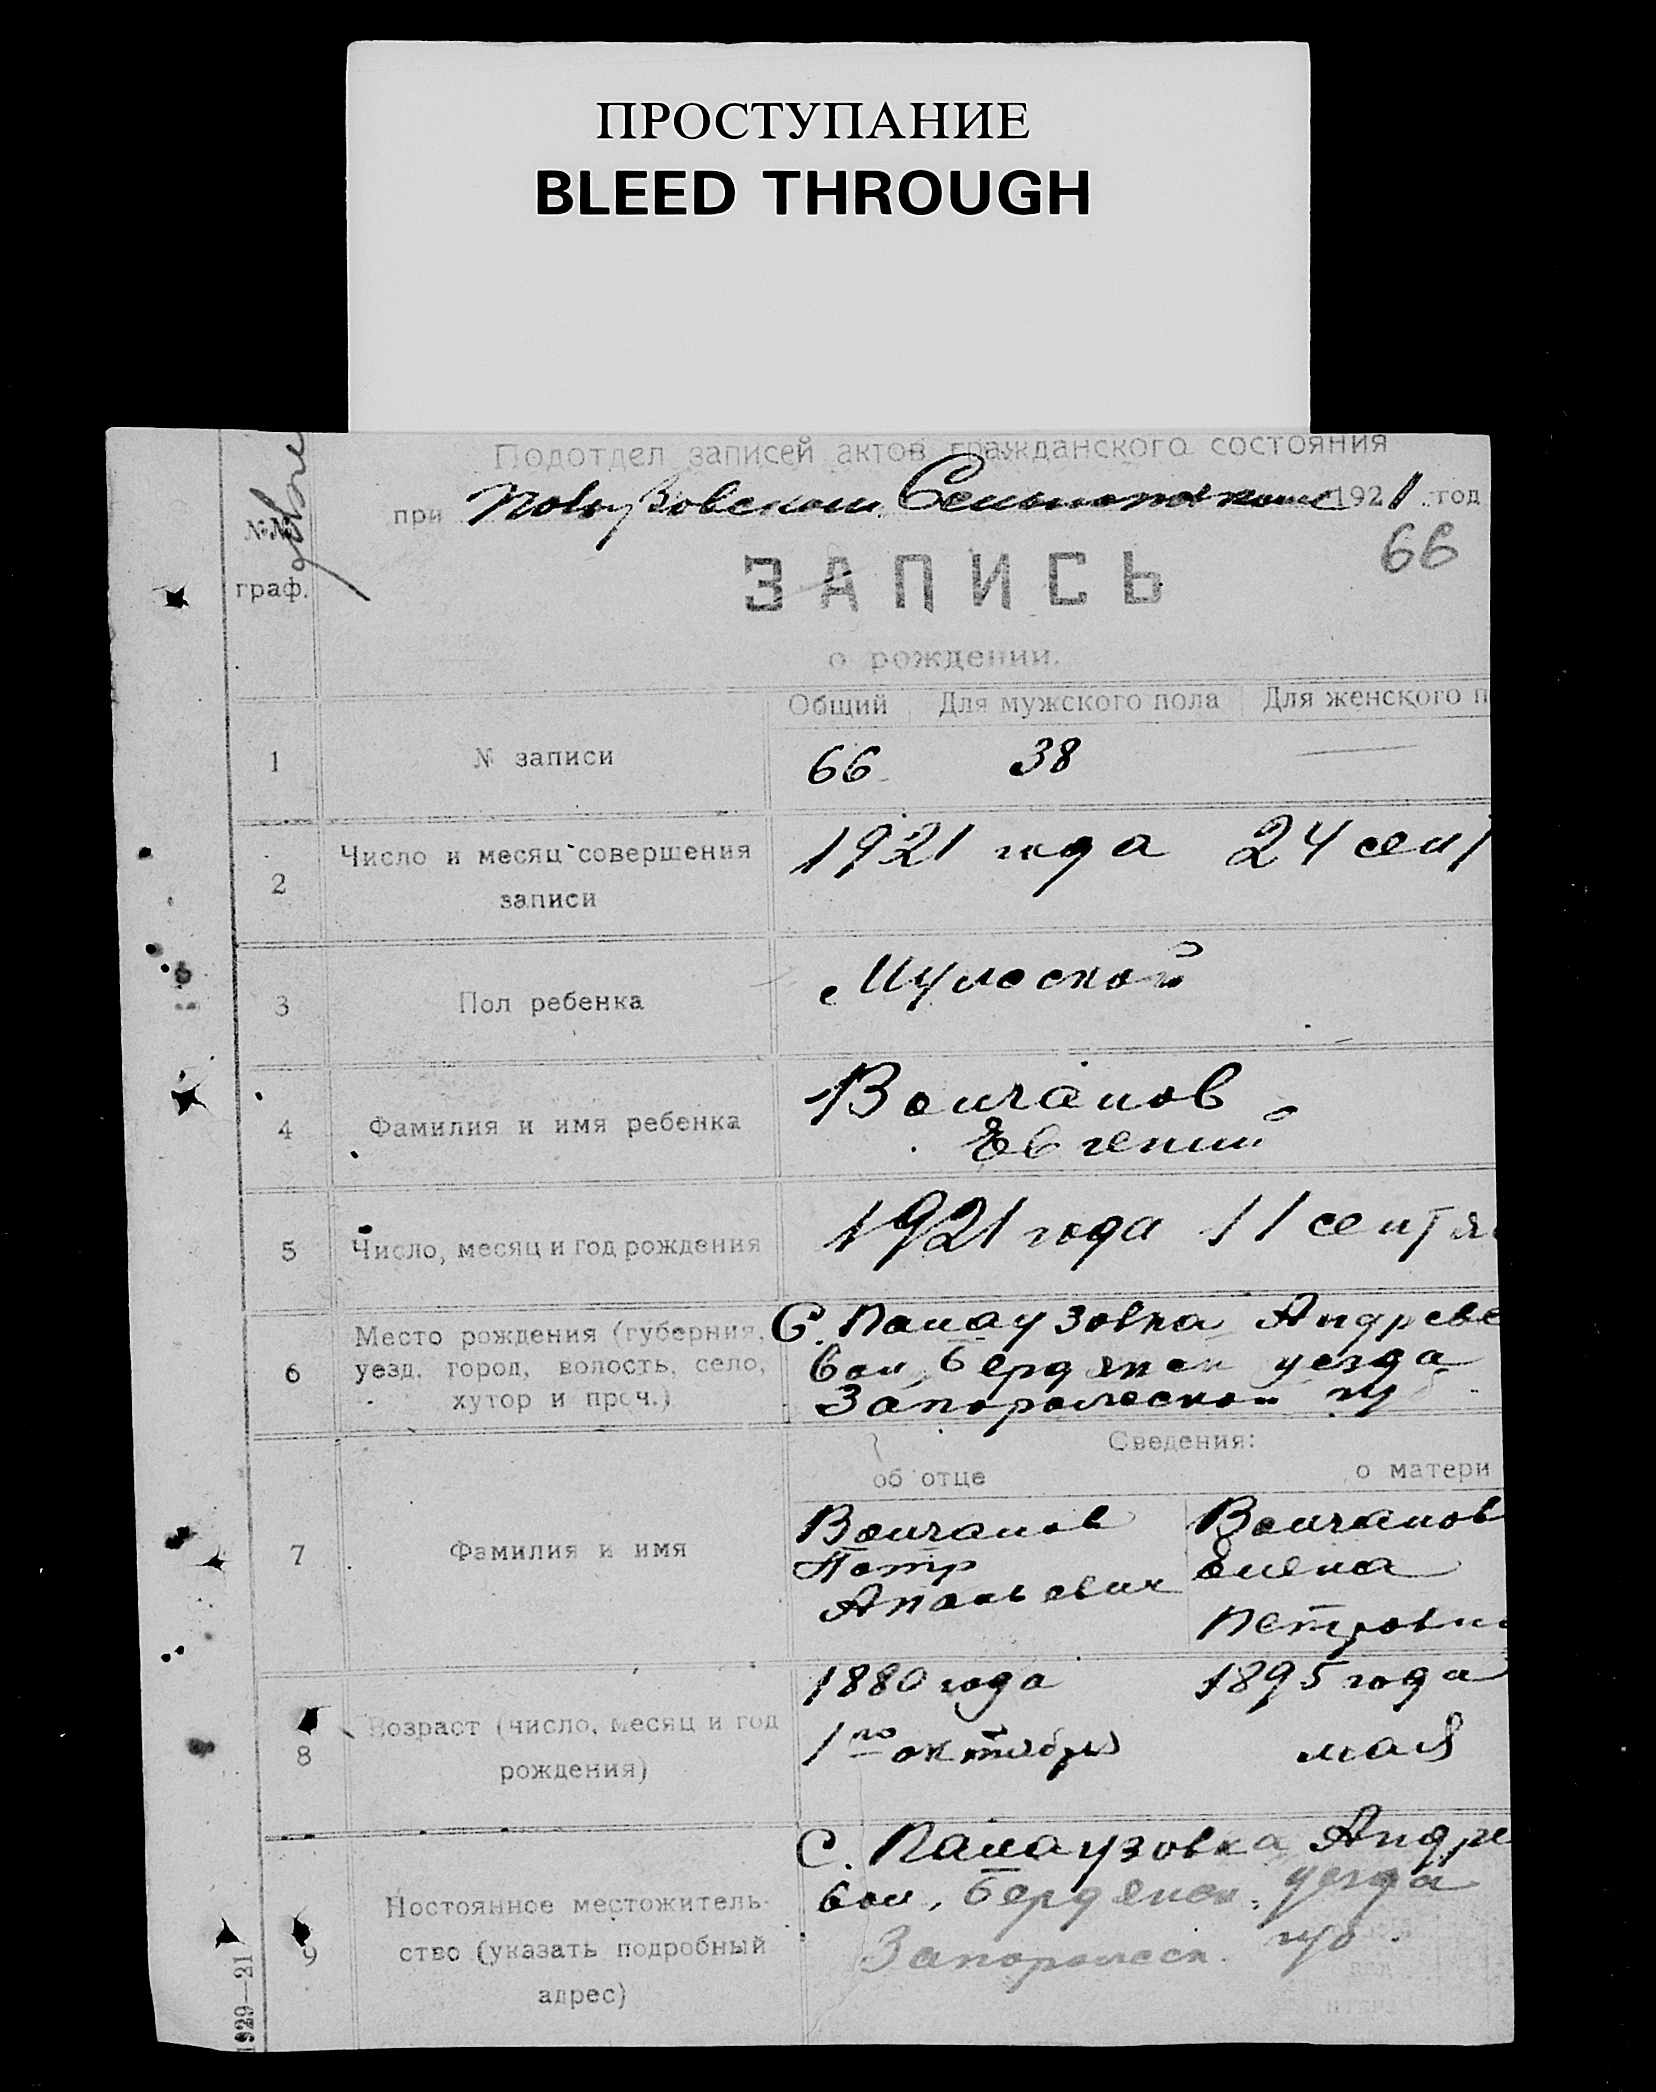 ПРОСТУПАНИЕ
BLEED THROUGH
Подотдел записей актов гражданского состояния
при 1921 год
№№
граф.
66
ЗАПИСЬ
о рождении.
Общий Для мужского пола Для женского п
1 № записи 66 38 —
2 Число и месяц совершения
записи
1921 года 24 сент
3 Пол ребенка Мужской
4 Фамилия и имя ребенка Волчанов
Евгений
5 Число, месяц и год рождения 1921 года 11 сентя
6 Место рождения (губерния,
уезд, город, волость, село,
хутор и проч.)
С. Палаузовка Андреев
вол, Бердянск уезда
Запорожской губ
Сведения:
об отце о матери
7 Фамилия и имя
Волчанов
Петр
Волчанов
Елена
Петровн
8 Возраст (число, месяц и год
рождения)
1880 года
1го октября
1895 года
мая
9 Постоянное местожитель-
ство (указать подробный
адрес)
С. Палаузовка Андре
вол, Бердянск. уезда
Запорожск. губ.
1929—21